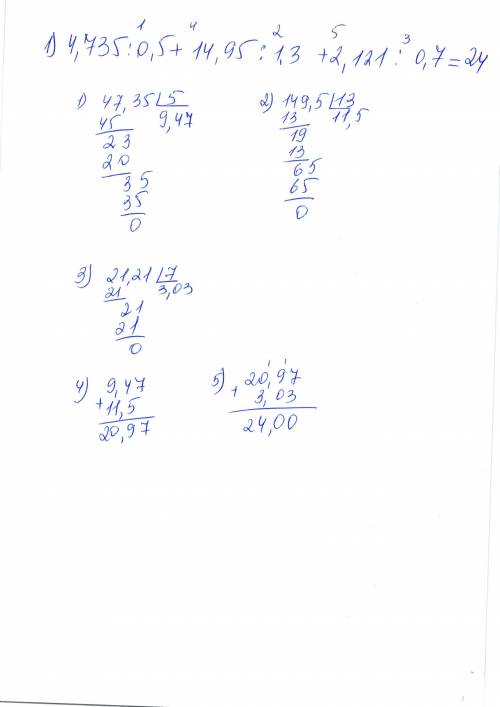 1 4 2 5 3
1) 4,735:0,5+14,95:1,3+2,121:0,7=24
1) 47,35 5
45 9,47
23
20
35
35
0
2) 149,5 13
13 11,5
19
13
65
65
0
3) 21,21 7
21 3,03
21
21
0
4) 9,47
+11,5
20,97
5) 20,97
+ 3,03
24,00